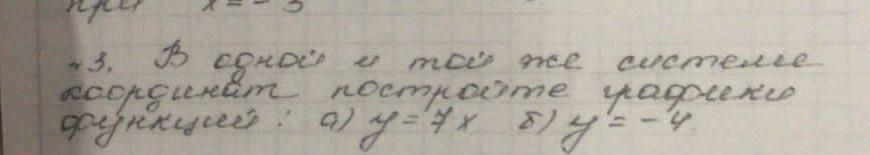 при x = - 3
№3. В одной и той же системе
координат постройте графики
функций: а) y = 7x б) y = -4